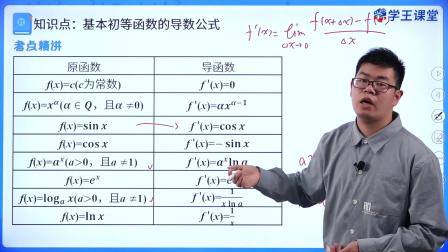 知识点：基本初等函数的导数公式
学王课堂
考点精讲
f'(x)=lim Δx→0 f(x+Δx)-f( Δx
原函数 导函数
f(x)=c(c为常数) f'(x)=0
f(x)=x^α(α∈Q，且α≠0) f'(x)=αx^(α-1)
f(x)=sin x f'(x)=cos x
f(x)=cos x f'(x)=-sin x
f(x)=a^x(a>0，且a≠1) f'(x)=a^x ln a
f(x)=e^x f'(x)=e
f(x)=log_a x(a>0，且a≠1) f'(x)=1/(x ln a)
f(x)=ln x f'(x)=1/x